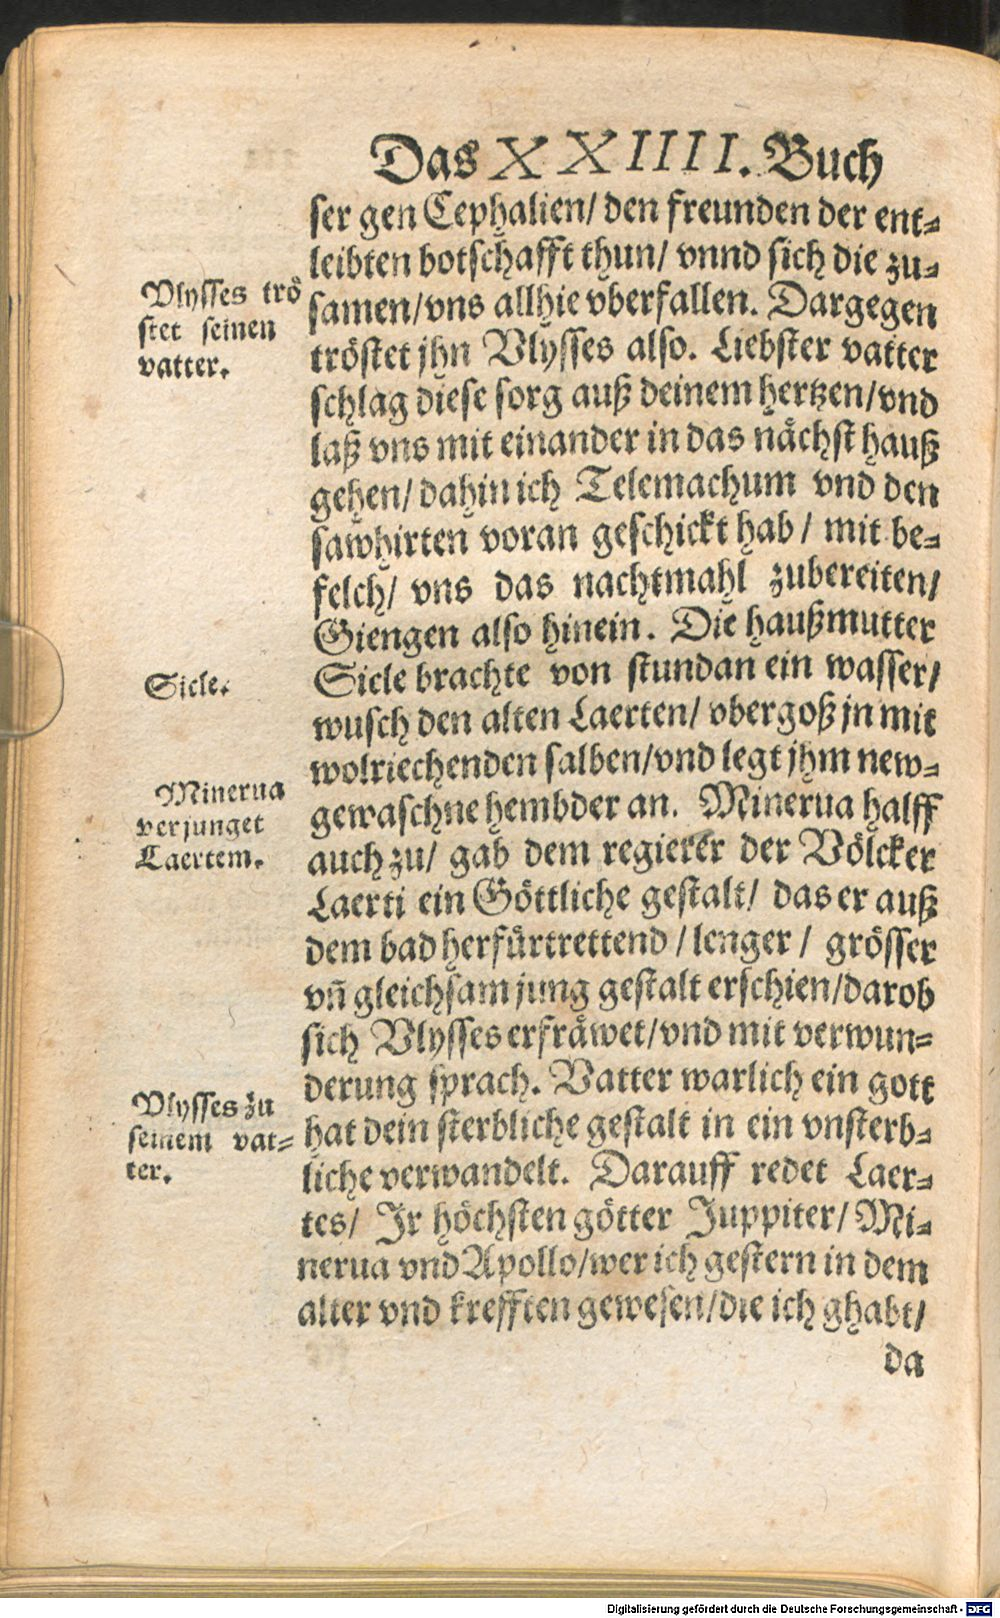 Das XXIIII. Buch
ser gen Cephalien/ den freunden der ent-
leibten botschafft thun/ vnnd sich die zu-
samen/vns allhie vberfallen. Dargegen
tröstet jhn Vlysses also. Liebster vatter
schlag diese sorg auß deinem hertzen/vnd
laß vns mit einander in das nächst hauß
gehen/ dahin ich Telemachum vnd den
sawhirten voran geschickt hab/ mit be-
felch/ vns das nachtmahl zubereiten/
Giengen also hinein. Die haußmutter
Sicle brachte von stundan ein wasser/
wusch den alten Laerten/ vbergoß jn mit
wolriechenden salben/vnd legt jhm new-
gewaschne hembder an. Minerua halff
auch zu/ gab dem regierer der Völcker
Laerti ein Göttliche gestalt/ das er auß
dem bad herfürtrettend/ lenger/ grösser
vñ gleichsam jung gestalt erschien/darob
sich Vlysses erfräwet/vnd mit verwun-
derung sprach. Vatter warlich ein gott
hat dein sterbliche gestalt in ein vnsterb-
liche verwandelt. Darauff redet Laer-
tes/ Jr höchsten götter Juppiter/ Mi-
nerua vnd Apollo/wer ich gestern in dem
alter vnd krefften gewesen/die ich ghabt/
da
Vlysses trö
stet seinen
vatter.
Sicle.
Minerua
verjunget
Laertem.
Vlysses zu
seinem vat-
ter.
Digitalisierung gefördert durch die Deutsche Forschungsgemeinschaft - DFG